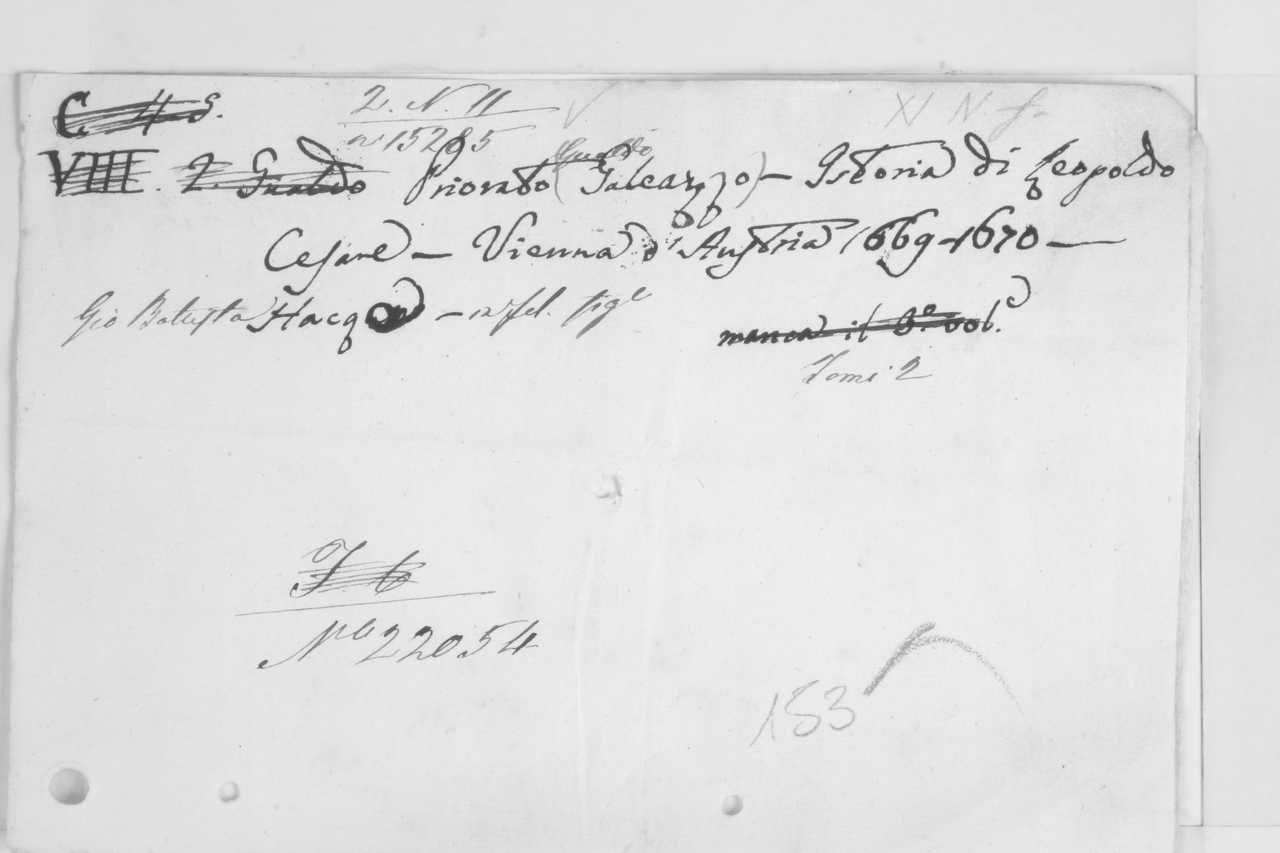 C. 4 5. 2. N. 11 XI N. f.
n° 15285
VIII. 2. Gualdo Priorato (Gualdo Galeazzo) – Istoria di Leopoldo
Cesare – Vienna d'Austria 1669–1670 —
Gio Batista Hacque – in fol. fig.e
manca il 3.° vol.e
Tomi 2
I 6
N.o 22054
153